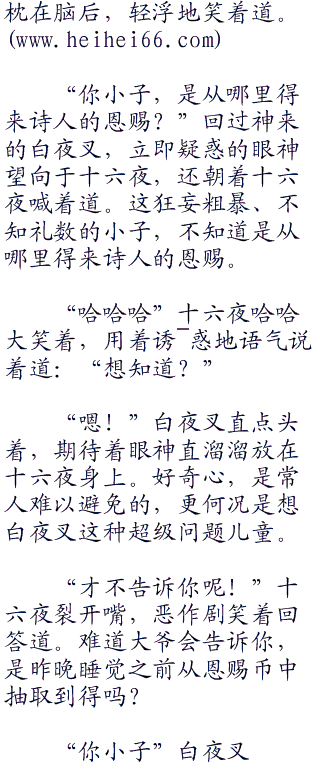 枕在脑后，轻浮地笑着道。
(www.heihei66.com)
“你小子，是从哪里得
来诗人的恩赐？”回过神来
的白夜叉，立即疑惑的眼神
望向于十六夜，还朝着十六
夜喊着道。这狂妄粗暴、不
知礼数的小子，不知道是从
哪里得来诗人的恩赐。
“哈哈哈”十六夜哈哈
大笑着，用着诱¯惑地语气说
着道：“想知道？”
“嗯！”白夜叉直点头
着，期待着眼神直溜溜放在
十六夜身上。好奇心，是常
人难以避免的，更何况是想
白夜叉这种超级问题儿童。
“才不告诉你呢！”十
六夜裂开嘴，恶作剧笑着回
答道。难道大爷会告诉你，
是昨晚睡觉之前从恩赐币中
抽取到得吗？
“你小子”白夜叉